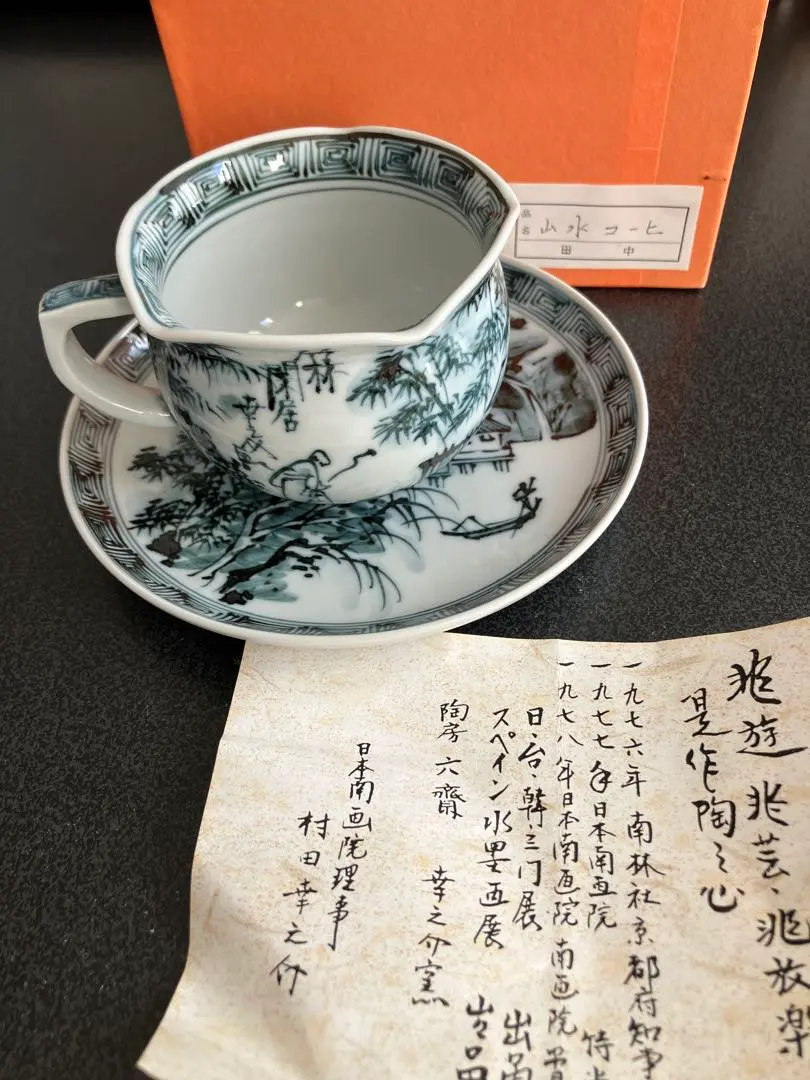 品名
山水コーヒ
田中
林
閑居
幸之
兆遊兆芸、兆放楽
是作陶之心
一九七六年 南林社京都府知事
一九七七年日本南画院 特
一九七八年日本南画院 南画院賞
日、台、韓、三门展 出品
スペイン水墨画展 出品
陶房 六齋 幸之介窯
日本南画院理事
村田幸之介